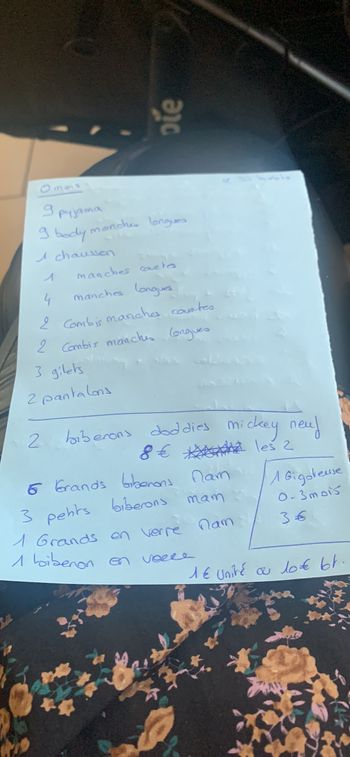 0 mois
9 pyjama
9 body manches longues
1 chausson
1 manches courtes
4 manches longues
2 Combis manches courtes
2 Combis manches longues
3 gilets
2 pantalons
2 biberons doddies mickey neuf
8 € les 2
6 Grands biberons Mam
3 petits biberons mam
1 Grands en verre Mam
1 biberon en verre
1 Gigoteuse
0-3 mois
3 €
1 € unité ou 10 € lot.